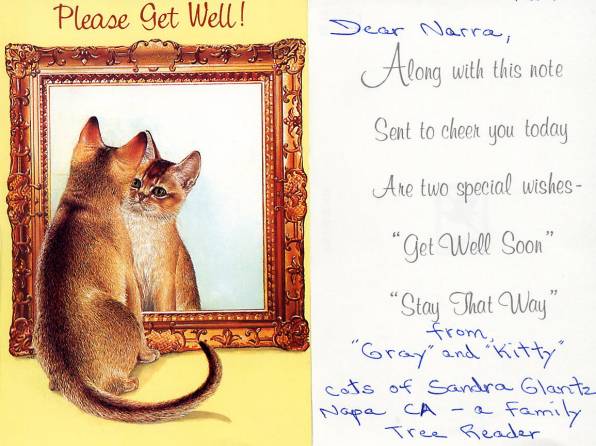 Please Get Well!
Dear Narra,
Along with this note
Sent to cheer you today
Are two special wishes-
"Get Well Soon"
"Stay That Way"
from,
"Gray" and "Kitty"
cats of Sandra Glantz
Napa CA - a Family
Tree Reader